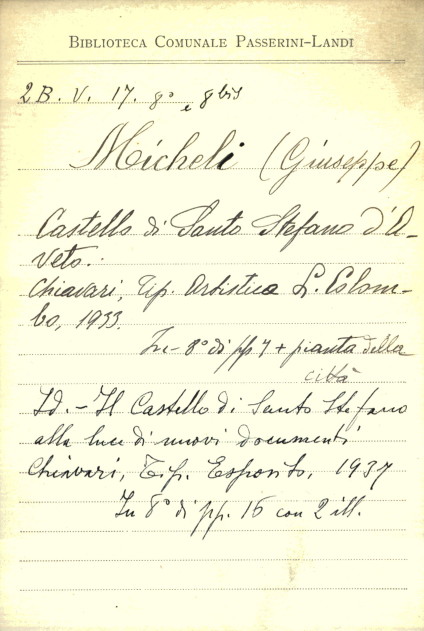 BIBLIOTECA COMUNALE PASSERINI-LANDI
2 B. V. 17. 8° e 8bis
Micheli (Giuseppe)
Castello di Santo Stefano d'A-
veto.
Chiavari, Tip. Artistica L. Colom-
bo, 1933.
In-8° di pp 7 + pianta della
città
Id. - Il Castello di Santo Stefano
alla luce di nuovi documenti
Chiavari, Tip. Esposito, 1937
In 8° di pp. 16 con 2 ill.